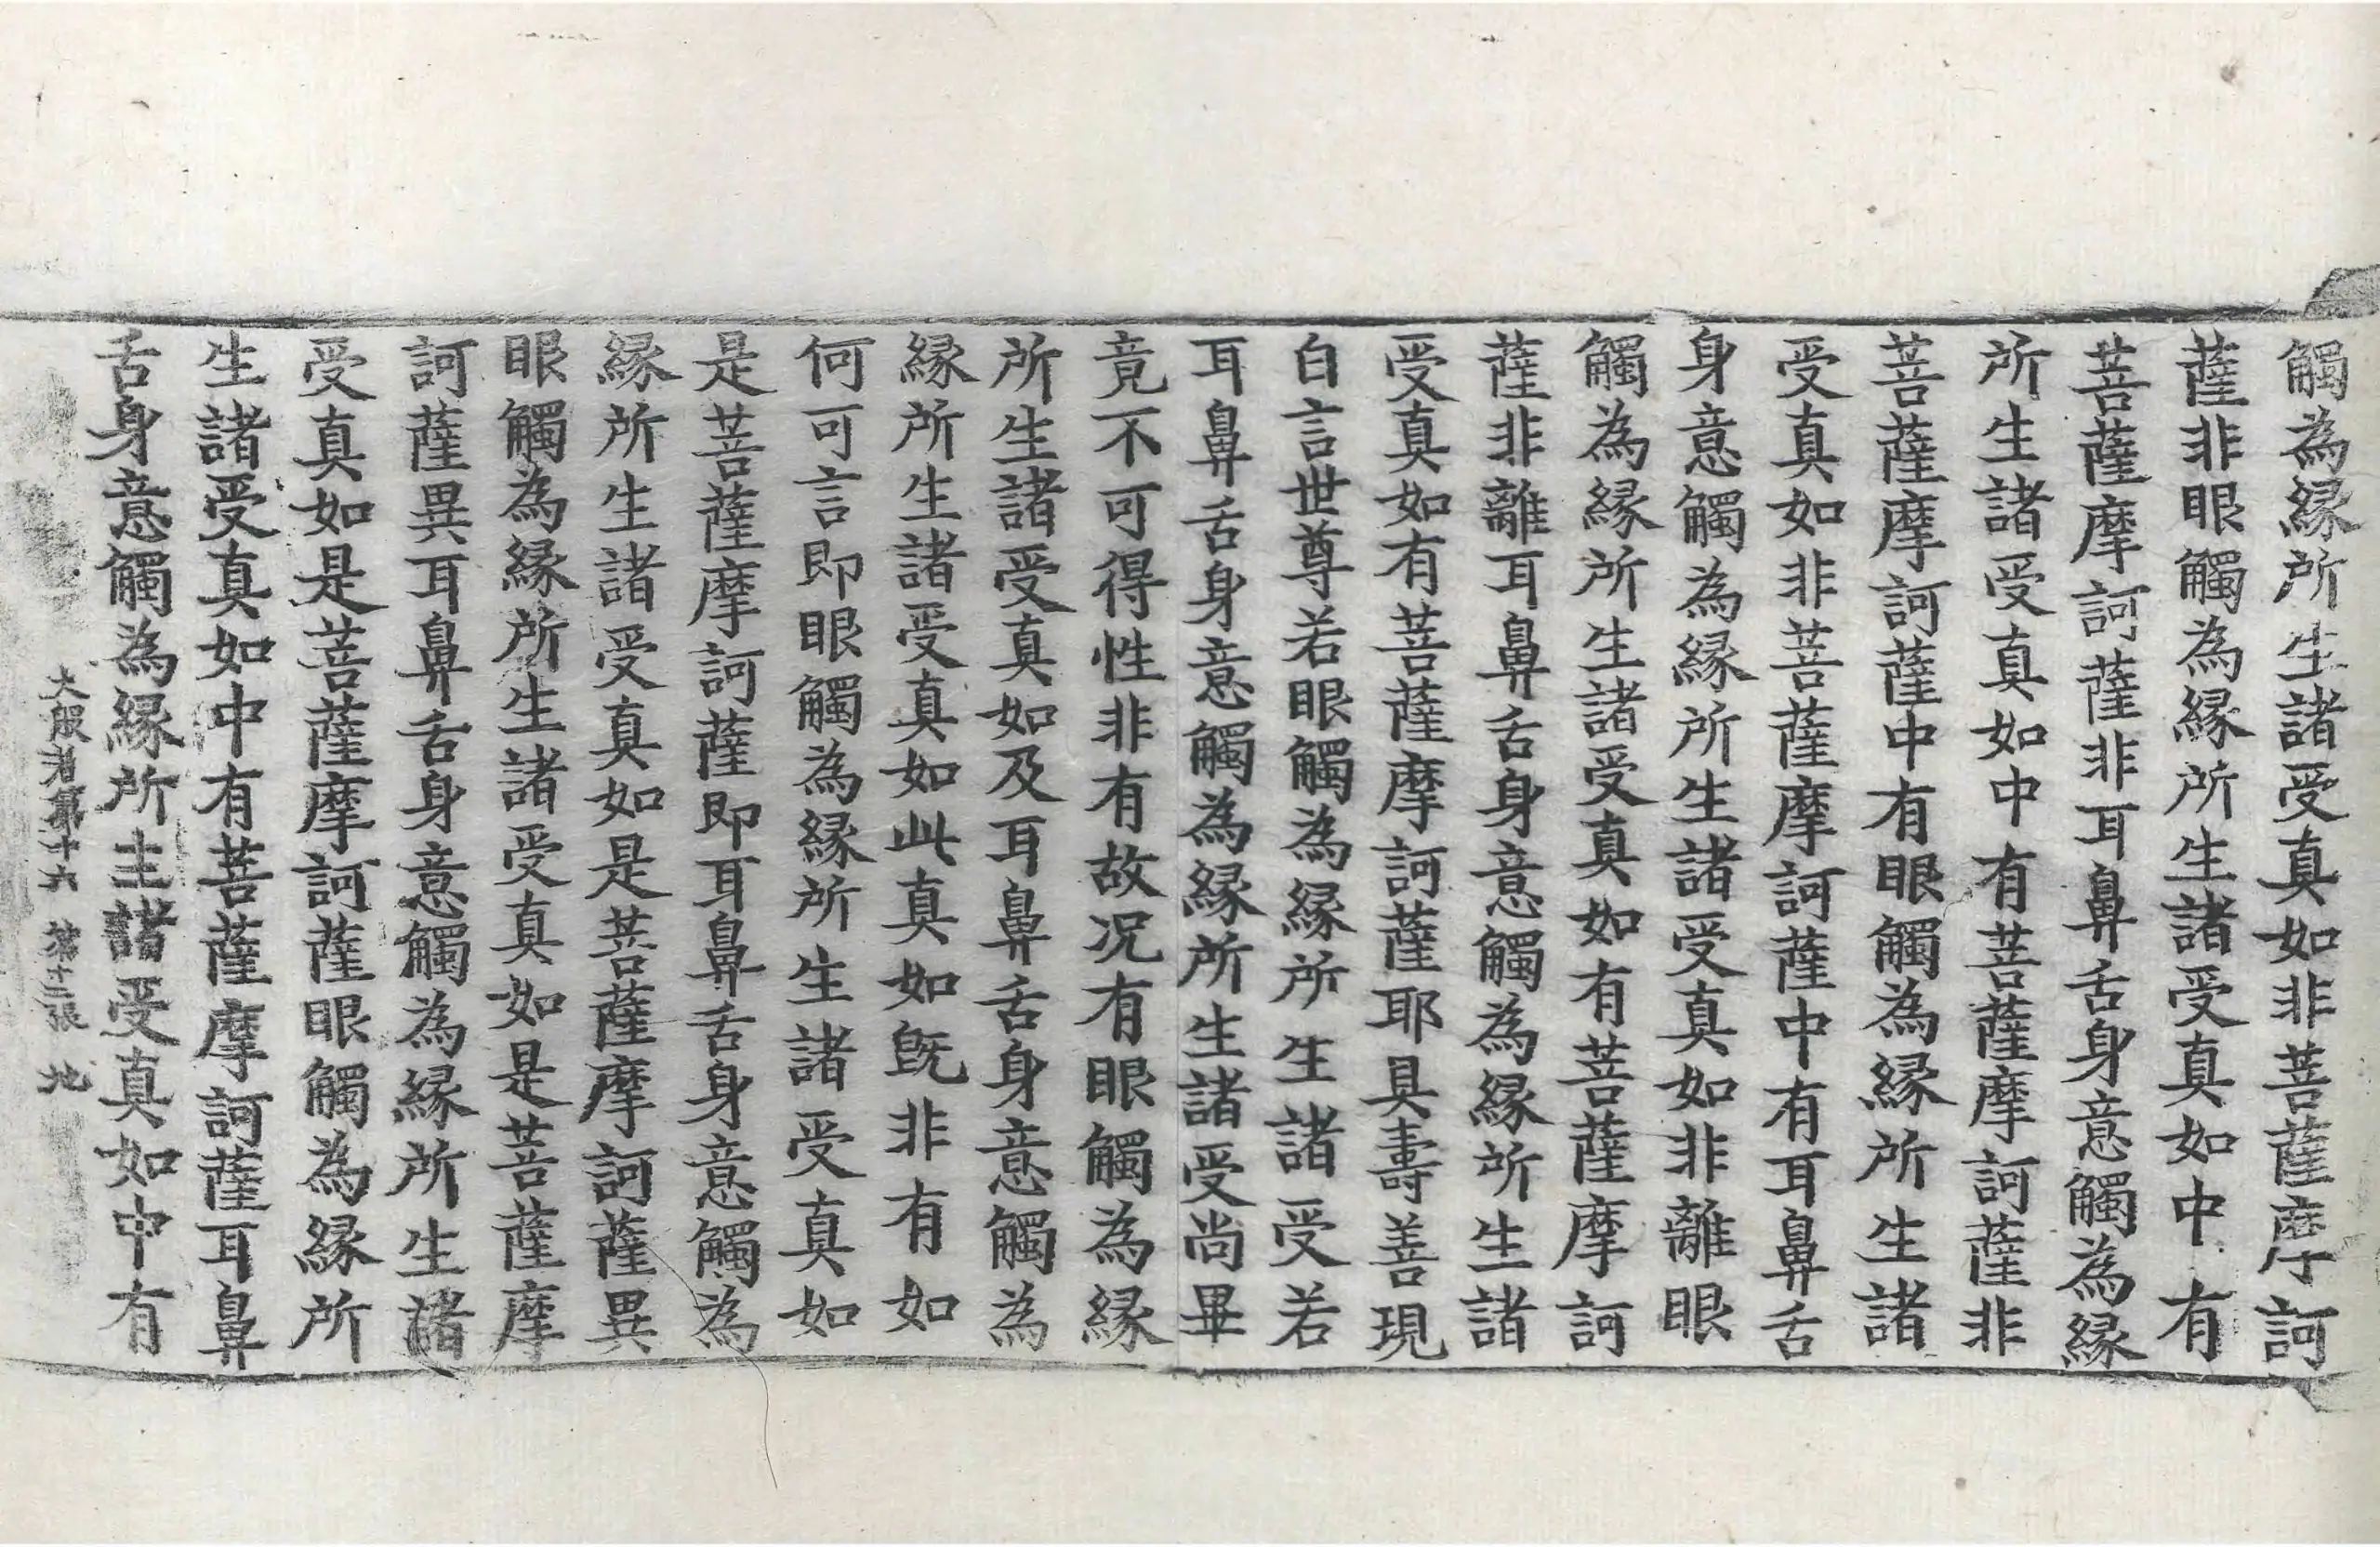 觸為緣所生諸受真如非菩薩摩訶
薩非眼觸為緣所生諸受真如中有
菩薩摩訶薩非耳鼻舌身意觸為緣
所生諸受真如中有菩薩摩訶薩非
菩薩摩訶薩中有眼觸為緣所生諸
受真如非菩薩摩訶薩中有耳鼻舌
身意觸為緣所生諸受真如非離眼
觸為緣所生諸受真如有菩薩摩訶
薩非離耳鼻舌身意觸為緣所生諸
受真如有菩薩摩訶薩耶具壽善現
白言世尊若眼觸為緣所生諸受若
耳鼻舌身意觸為緣所生諸受尚畢
竟不可得性非有故况有眼觸為緣
所生諸受真如及耳鼻舌身意觸為
緣所生諸受真如此真如旣非有如
何可言即眼觸為緣所生諸受真如
是菩薩摩訶薩即耳鼻舌身意觸為
緣所生諸受真如是菩薩摩訶薩異
眼觸為緣所生諸受真如是菩薩摩
訶薩異耳鼻舌身意觸為緣所生諸
受真如是菩薩摩訶薩眼觸為緣所
生諸受真如中有菩薩摩訶薩耳鼻
舌身意觸為緣所生諸受真如中有
大般若第十六 第十二張 地